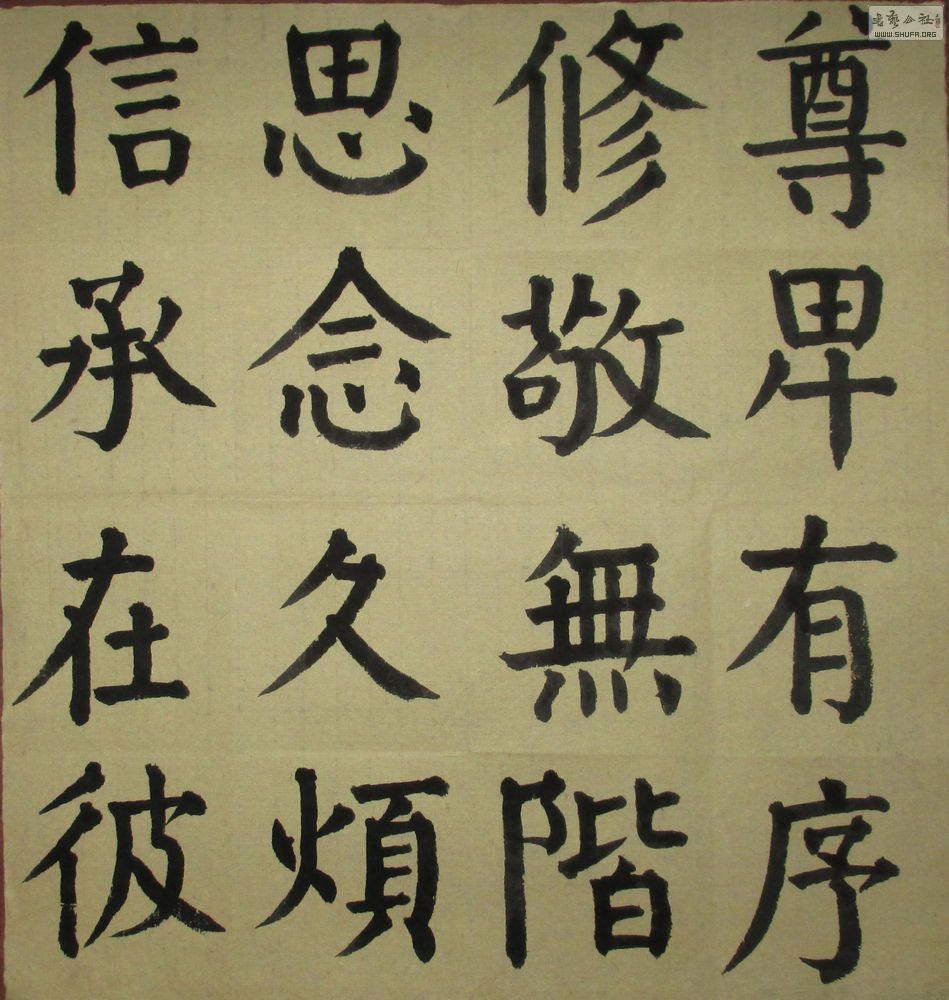 尊卑有序
修敬無階
思念久煩
信承在彼
WWW.SHUFA.ORG